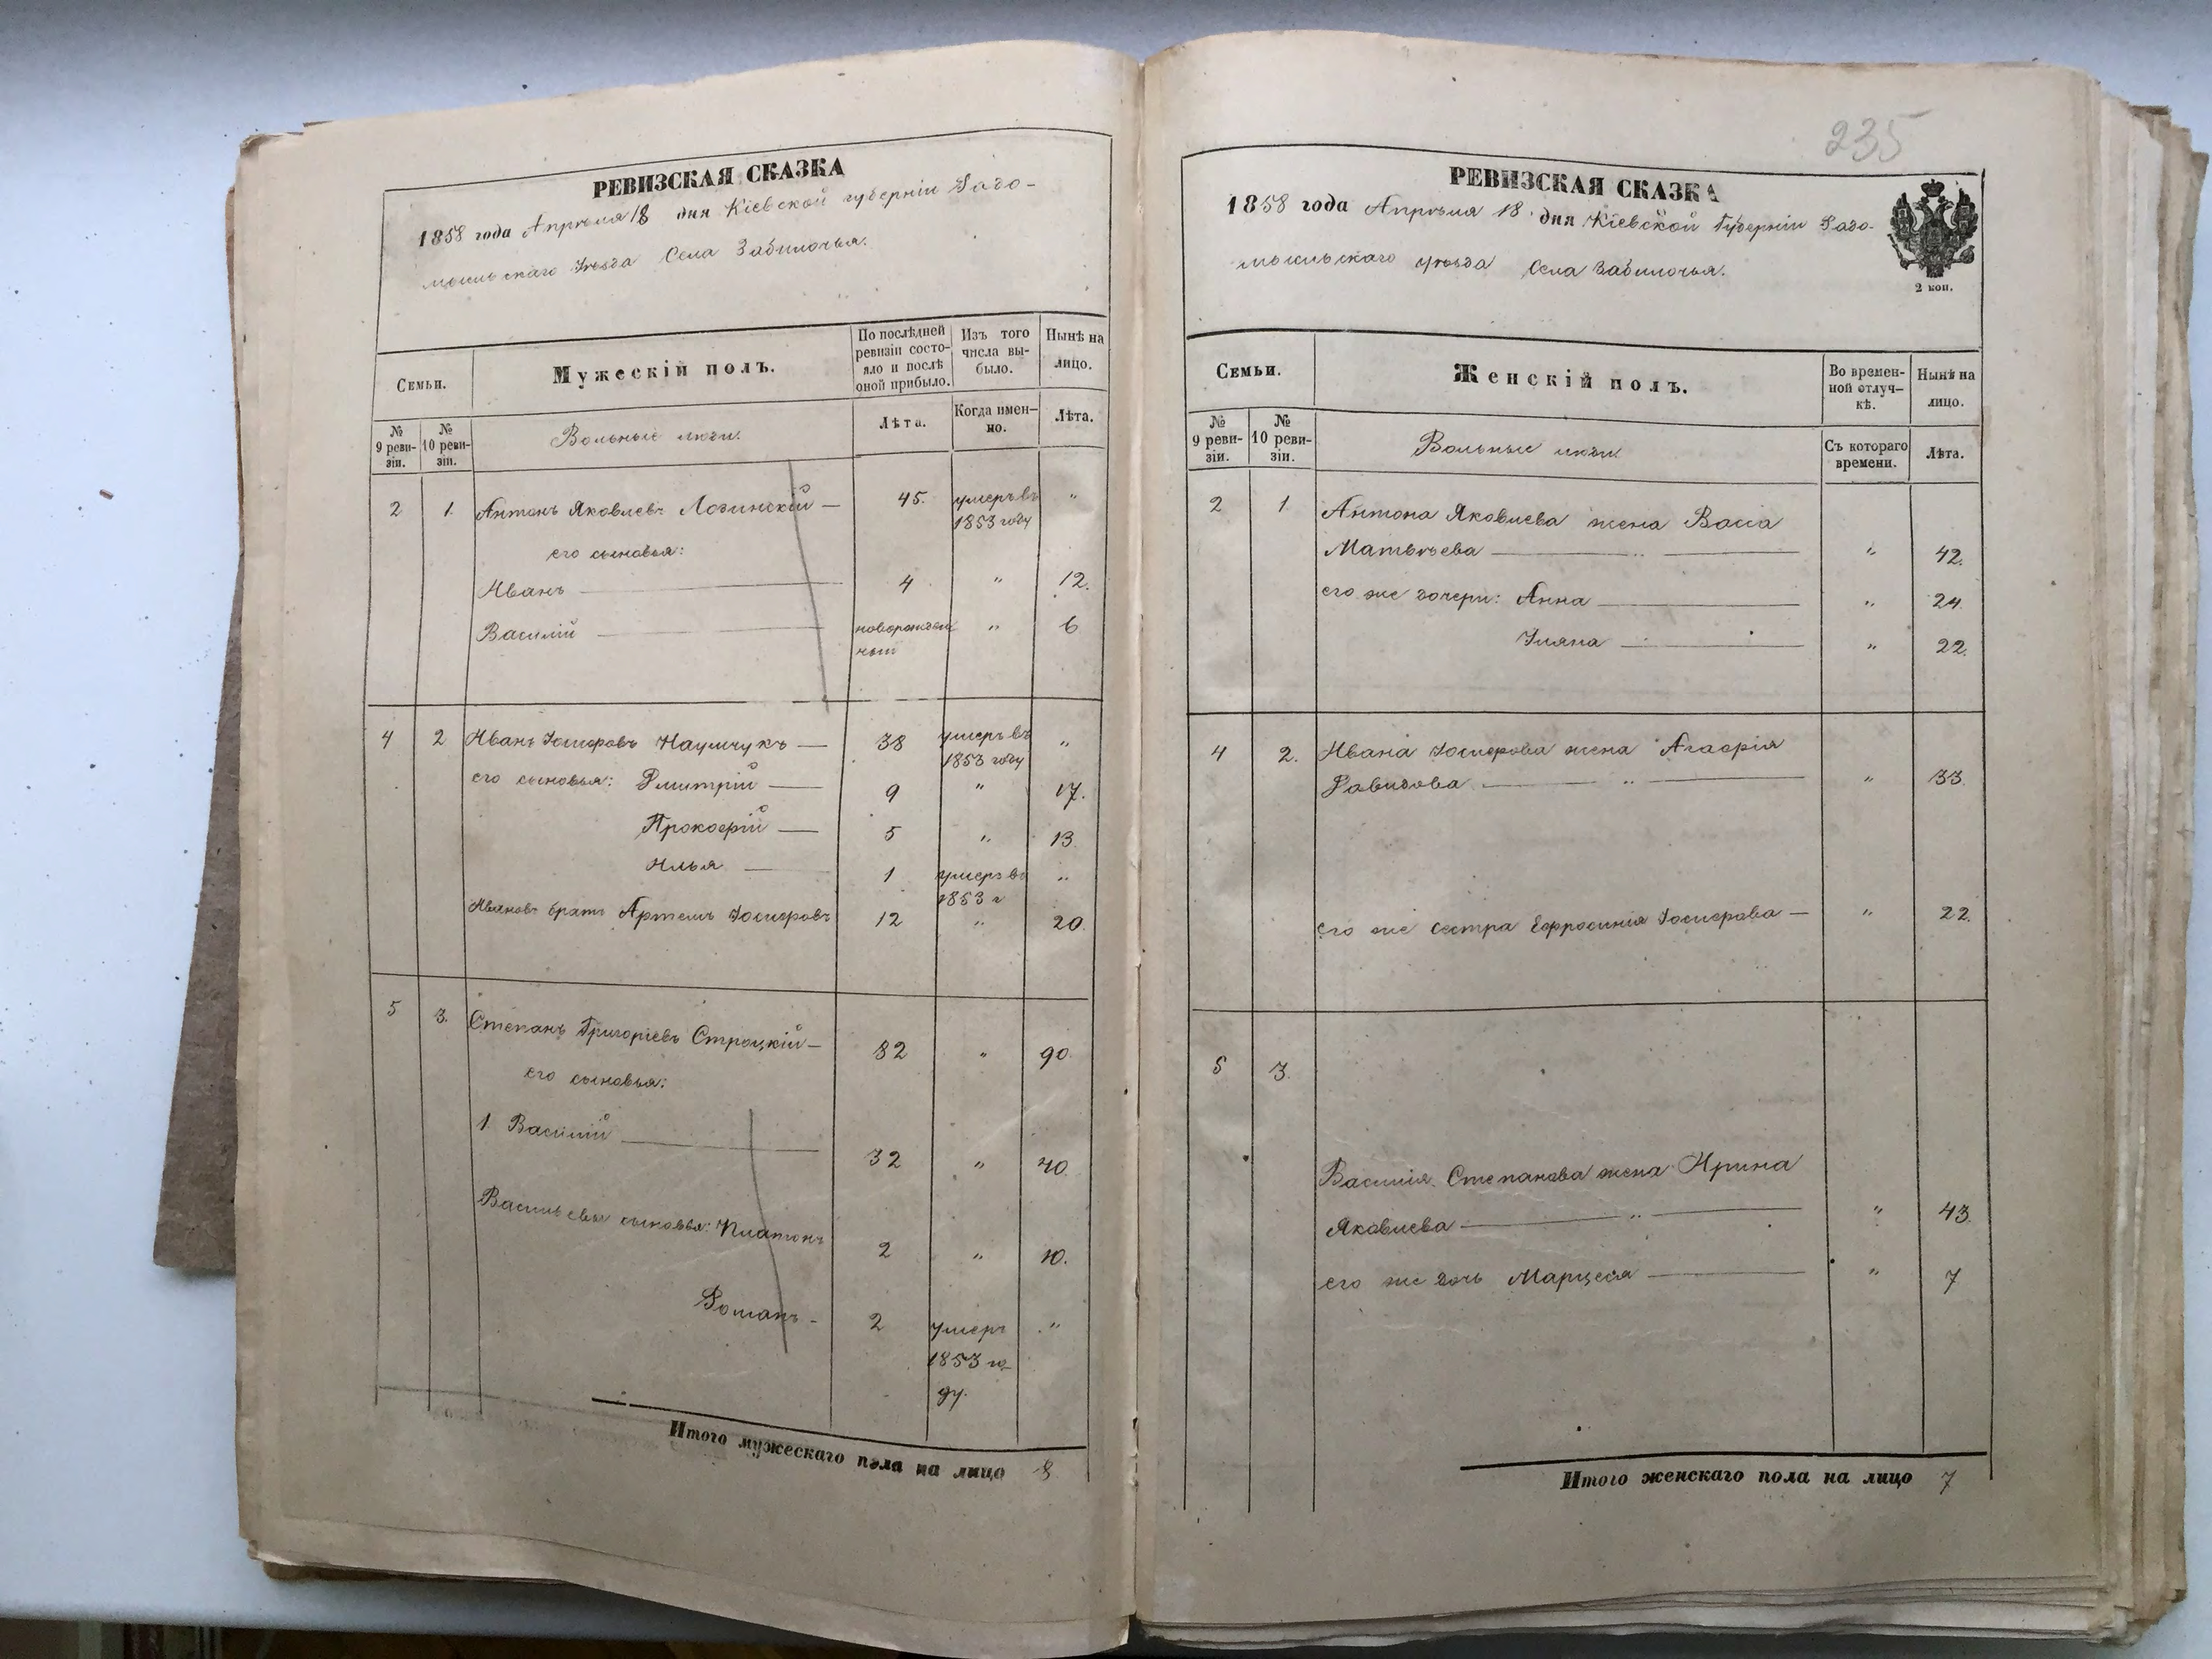 РЕВИЗСКАЯ СКАЗКА
1858 года Апрѣля 18 дня Кіевской губерніи Радо-
мысльскаго Уѣзда Села Забилочья.
Семьи.
Мужескій полъ.
По послѣдней ревизіи состо-
яло и послѣ
оной прибыло.
Изъ того
числа вы-
было.
Нынѣ на
лицо.
№
9 реви-
зіи.
№
10 реви-
зіи.
Вольные люди.
Лѣта.
Когда имен-
но.
Лѣта.
2 1. Антонъ Яковлевъ Лозинскій — 45. умеръ въ "
1853 году
его сыновья:
Иванъ — 4 " 12.
Василій — новорожден " 6
ный
4 2 Иванъ Іосифовъ Наумчукъ — 38 умеръ въ "
1853 году
его сыновья: Дмитрій — 9 " 17.
Прокофій — 5 " 13
Илья — 1 умеръ въ "
1853 г
Ивановъ братъ Артемъ Іосифовъ 12 " 20.
5 3. Степанъ Григоріевъ Строцкій — 82 " 90.
его сыновья:
1. Василій — 32 " 40.
Васильевы сыновья: Платонъ 2 " 10.
Романъ - 2 умеръ "
1853 го-
ду.
Итого мужескаго пола на лицо 8
235
РЕВИЗСКАЯ СКАЗКА
1858 года Апрѣля 18 дня Кіевской Губерніи Радо-
мысльскаго уѣзда Села Забилочья.
2 коп.
Семьи.
Женскій полъ.
Во времен-
ной отлуч-
кѣ.
Нынѣ на
лицо.
№
9 реви-
зіи.
№
10 реви-
зіи.
Вольные люди
Съ котораго
времени.
Лѣта.
2 1 Антона Яковлева жена Васса
Матвѣева — " — " 42.
его же дочери: Анна — " 24.
Уляна — " 22.
4 2. Ивана Іосифова жена Агафія
Давидова — " — " 33.
его же сестра Ефросинія Іосифова — " 22.
5 3.
Василія Степанова жена Ирина
Яковлева — " — " 43.
его же дочь — " 7
Итого женскаго пола на лицо 7